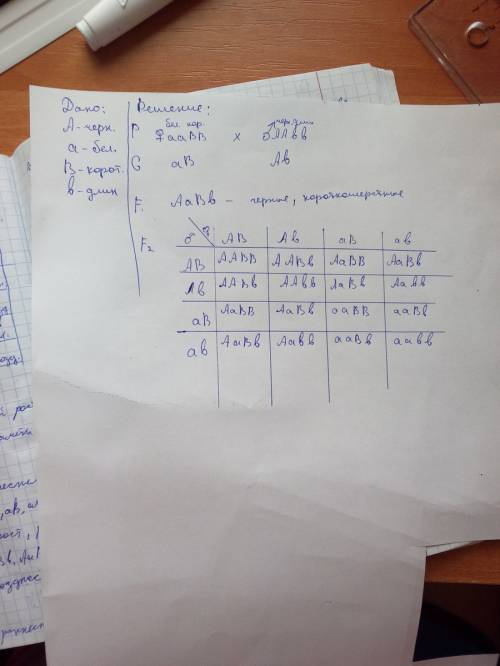 Дано:
А - черн.
а - бел.
В - корот.
в - длин
Решение:
бел. кор. чер. длин
Р ♀ааВВ х ♂ААвв
G аВ Ав
F₁ АаВв - черные, короткошерстные
F₂
♂ ♀ АВ Ав аВ ав
АВ ААВВ ААВв АаВВ АаВв
Ав ААВв ААвв АаВв Аавв
аВ АаВВ АаВв ааВВ ааВв
ав АаВв Аавв ааВв аавв